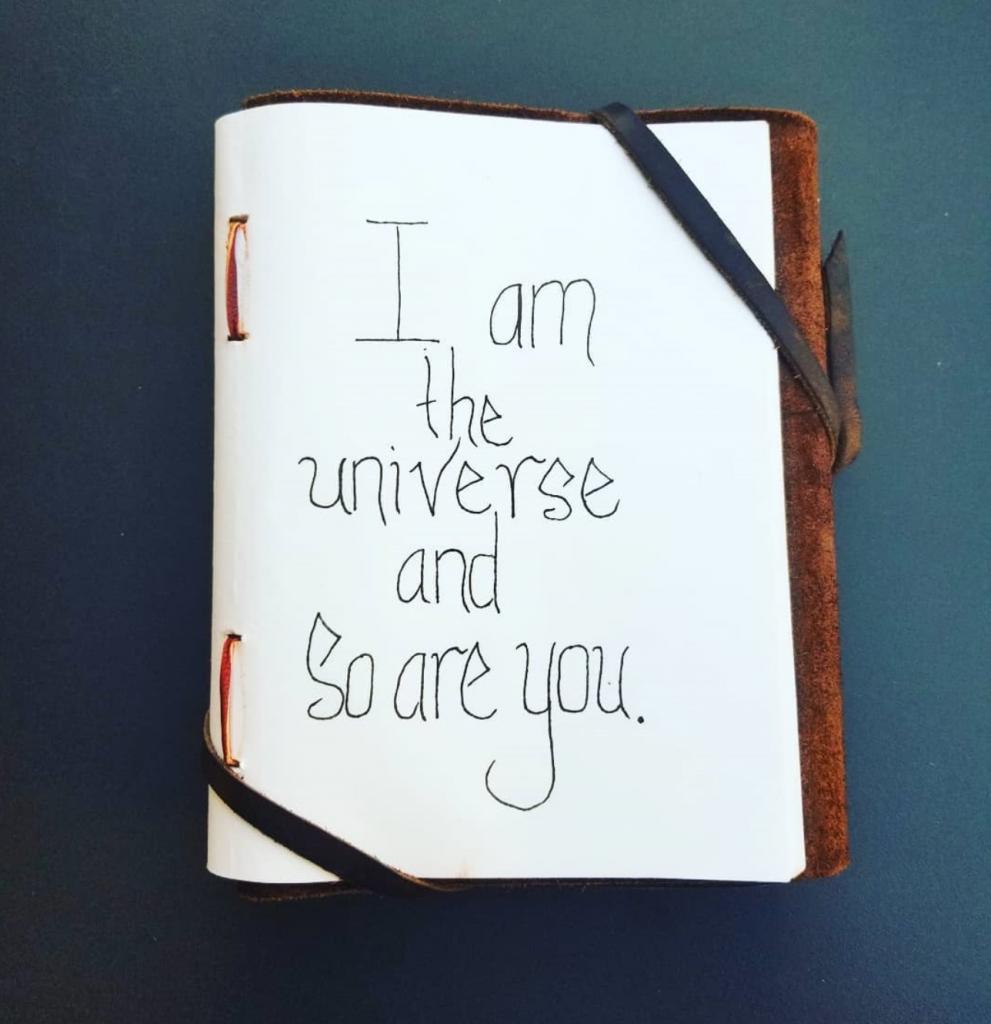 I am
the
universe
and
So are you.